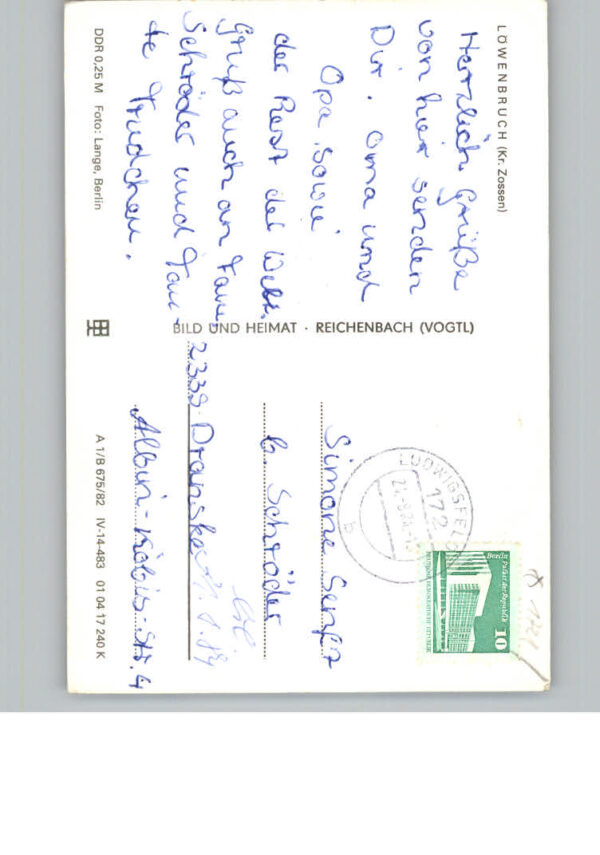 LÖWENBRUCH (Kr. Zossen)
Herzlich Grüße
von hier senden
Dir. Oma und
Opa sowie
der Rest der Welt.
Gruß auch an Tante
Schröder und Tan-
te Trudchen.
DDR 0,25 M Foto: Lange, Berlin
BILD UND HEIMAT · REICHENBACH (VOGTL)
LUDWIGSFELDE
172
b
Berlin Palast der Republik
10
Simone Senf
b. Schröder
2339 Dranske
Albin-Köbis-Str. 4
A 1/B 675/82 IV-14-483 01 04 17 240 K